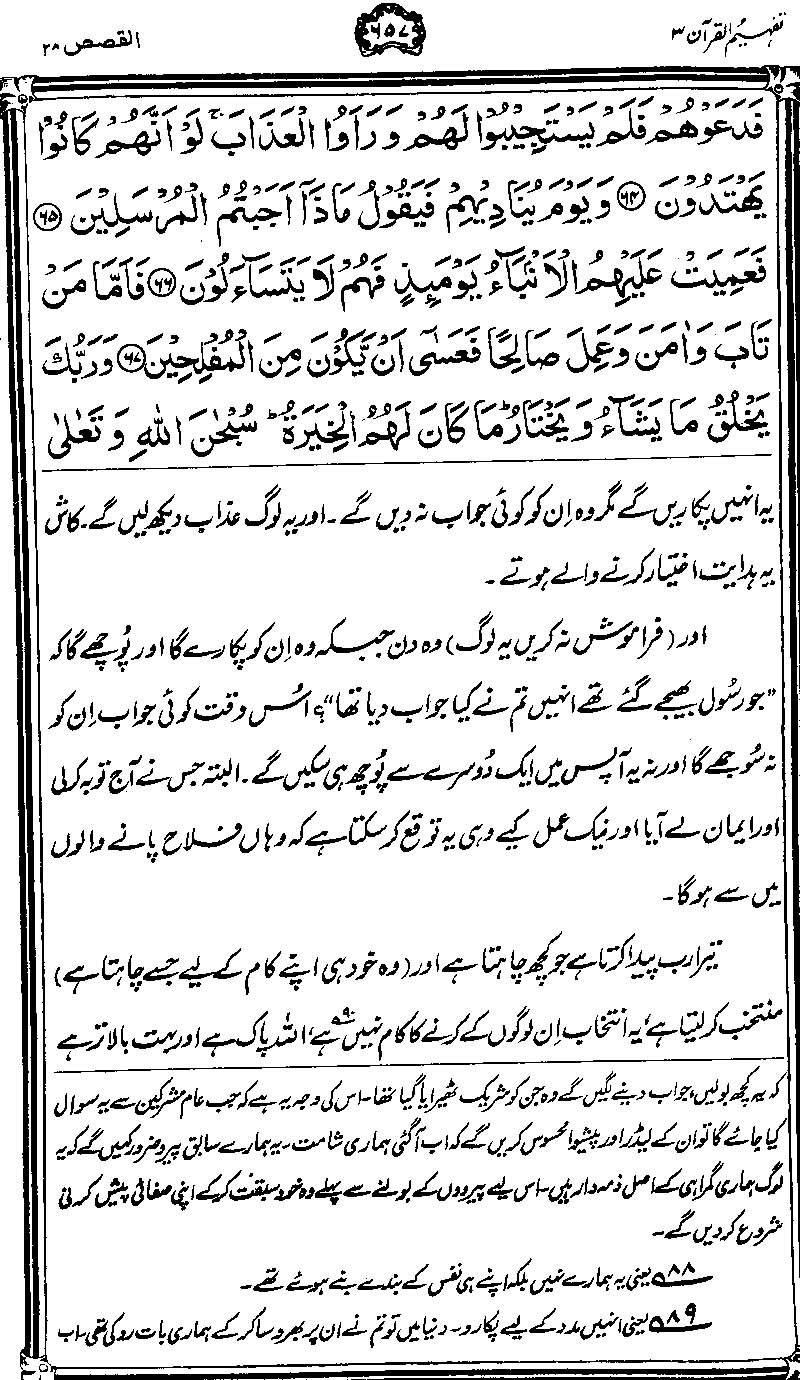 تفہیم القرآن ۳
۶۵۷
القصص ۲۸
فَدَعَوْهُمْ فَلَمْ يَسْتَجِيْبُوْا لَهُمْ وَرَاَوُا الْعَذَابَ ۚ لَوْ اَنَّهُمْ كَانُوْا
يَهْتَدُوْنَ ﴿۶۴﴾ وَيَوْمَ يُنَادِيْهِمْ فَيَقُوْلُ مَاذَاۤ اَجَبْتُمُ الْمُرْسَلِيْنَ ﴿۶۵﴾
فَعَمِيَتْ عَلَيْهِمُ الْاَنْۢبَآءُ يَوْمَئِذٍ فَهُمْ لَا يَتَسَآءَلُوْنَ ﴿۶۶﴾ فَاَمَّا مَنْ
تَابَ وَاٰمَنَ وَعَمِلَ صَالِحًا فَعَسٰۤى اَنْ يَّكُوْنَ مِنَ الْمُفْلِحِيْنَ ﴿۶۷﴾ وَرَبُّكَ
يَخْلُقُ مَا يَشَآءُ وَيَخْتَارُ ؕ مَا كَانَ لَهُمُ الْخِيَرَةُ ؕ سُبْحٰنَ اللّٰهِ وَتَعٰلٰى
یہ انہیں پکاریں گے مگر وہ اِن کو کوئی جواب نہ دیں گے۔ اور یہ لوگ عذاب دیکھ لیں گے۔ کاش
یہ ہدایت اختیار کرنے والے ہوتے۔
اور (فراموش نہ کریں یہ لوگ) وہ دن جبکہ وہ اِن کو پکارے گا اور پُوچھے گا کہ
”جو رسُول بھیجے گئے تھے انہیں تم نے کیا جواب دیا تھا“؟ اُس وقت کوئی جواب اِن کو
نہ سُوجھے گا اور نہ یہ آپس میں ایک دُوسرے سے پُوچھ ہی سکیں گے۔ البتہ جس نے آج توبہ کر لی
اور ایمان لے آیا اور نیک عمل کیے وہی یہ توقع کر سکتا ہے کہ وہاں فلاح پانے والوں
میں سے ہوگا۔
تیرا رب پیدا کرتا ہے جو کچھ چاہتا ہے اور (وہ خود ہی اپنے کام کے لیے جسے چاہتا ہے)
منتخب کر لیتا ہے، یہ انتخاب اِن لوگوں کے کرنے کا کام نہیں ہے، ۹۰ اللہ پاک ہے اور بہت بالاتر ہے
کہ یہ کچھ بولیں، جواب دینے لگیں گے وہ جن کو شریک ٹھیرایا گیا تھا۔ اس کی وجہ یہ ہے کہ جب عام مشرکین سے یہ سوال
کیا جائے گا تو ان کے لیڈر اور پیشوا محسوس کریں گے کہ اب آگئی ہماری شامت۔ یہ ہمارے سابق پیرو ضرور کہیں گے کہ یہ
لوگ ہماری گمراہی کے اصل ذمہ دار ہیں۔ اس لیے پیرووں کے بولنے سے پہلے وہ خود سبقت کر کے اپنی صفائی پیش کرنی
شروع کر دیں گے۔
۸۸ یعنی یہ ہمارے نہیں بلکہ اپنے ہی نفس کے بندے بنے ہوئے تھے۔
۸۹ یعنی انہیں مدد کے لیے پکارو۔ دنیا میں تو تم نے ان پر بھروسا کر کے ہماری بات رد کی تھی۔ اب